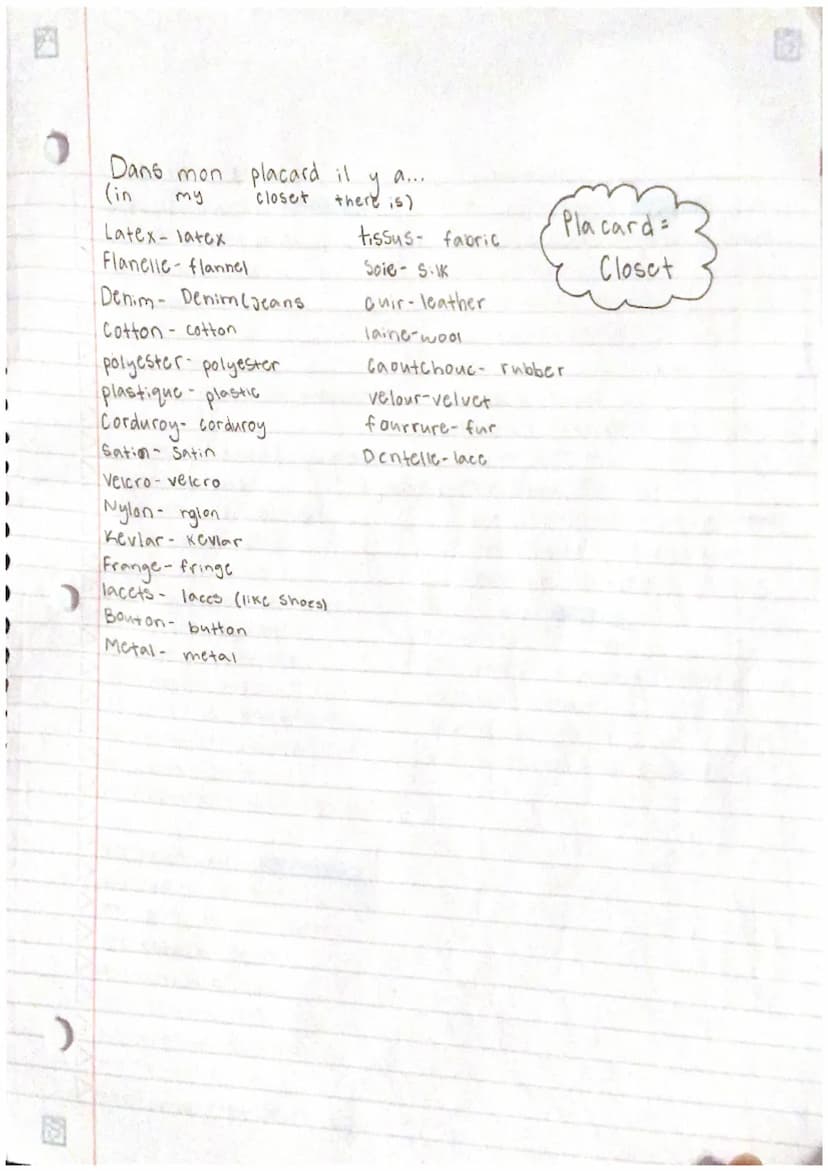 Dans mon placard il y a...
(in my closet there is)
Latex- latex
Flanelle- flannel
Denim- Denim (Jeans
Cotton - cotton
polyester- polyester
plastique- plastic
Corduroy- corduroy
Satin- Satin
Velcro- velcro
Nylon- nylon
Kevlar- Kevlar
Frange- fringe
lacets- laces (like shoes)
Bouton- button
Metal- metal
tissus- fabric
Soie- Silk
cuir- leather
laine-wool
Caoutchouc- rubber
velour-velvet
fourrure- fur
Dentelle-lace
Placard=
Closet